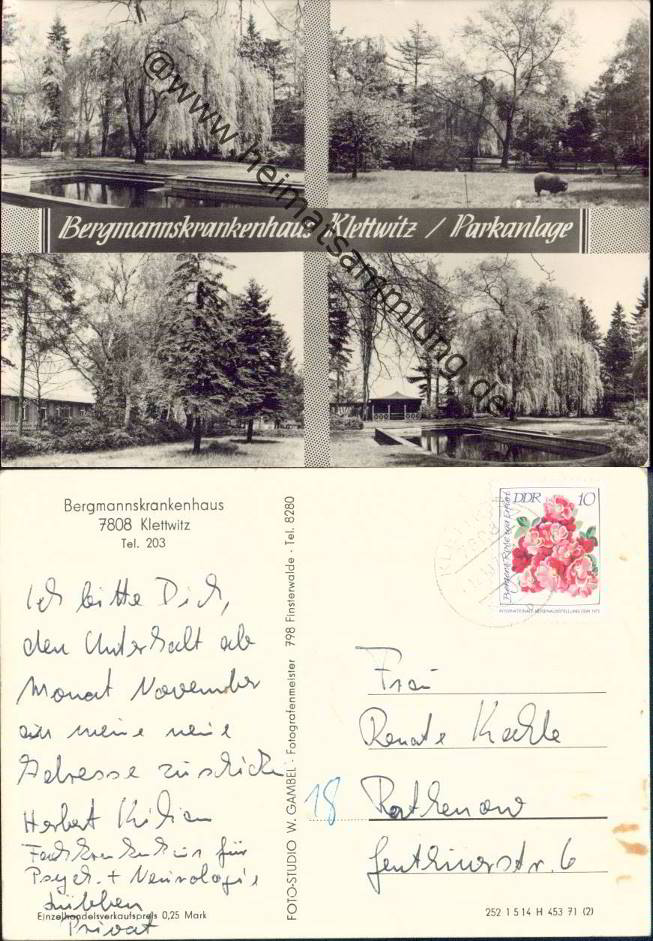 @www.heimatsammlung.de
Bergmannskrankenhaus Klettwitz / Parkanlage
Bergmannskrankenhaus
7808 Klettwitz
Tel. 203
Ich bitte Dich,
den Unterhalt ab
Monat November
an meine neue
Adresse zu schicken
Herbert Kilian
Fachkrankenhaus für
Psych. + Neurologie
Lübben
Privat
Einzelhandelsverkaufspreis 0,25 Mark
FOTO-STUDIO W. GAMBEL · Fotografenmeister 798 Finsterwalde · Tel. 8280
DDR 10
Frau
Renate
18 Rathenow
Genthinerstr. 6
252 1 5 14 H 453 71 (2)